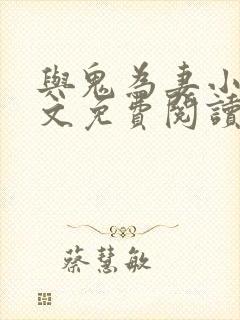 與鬼為妻小
文免費閱讀
蔡慧敏